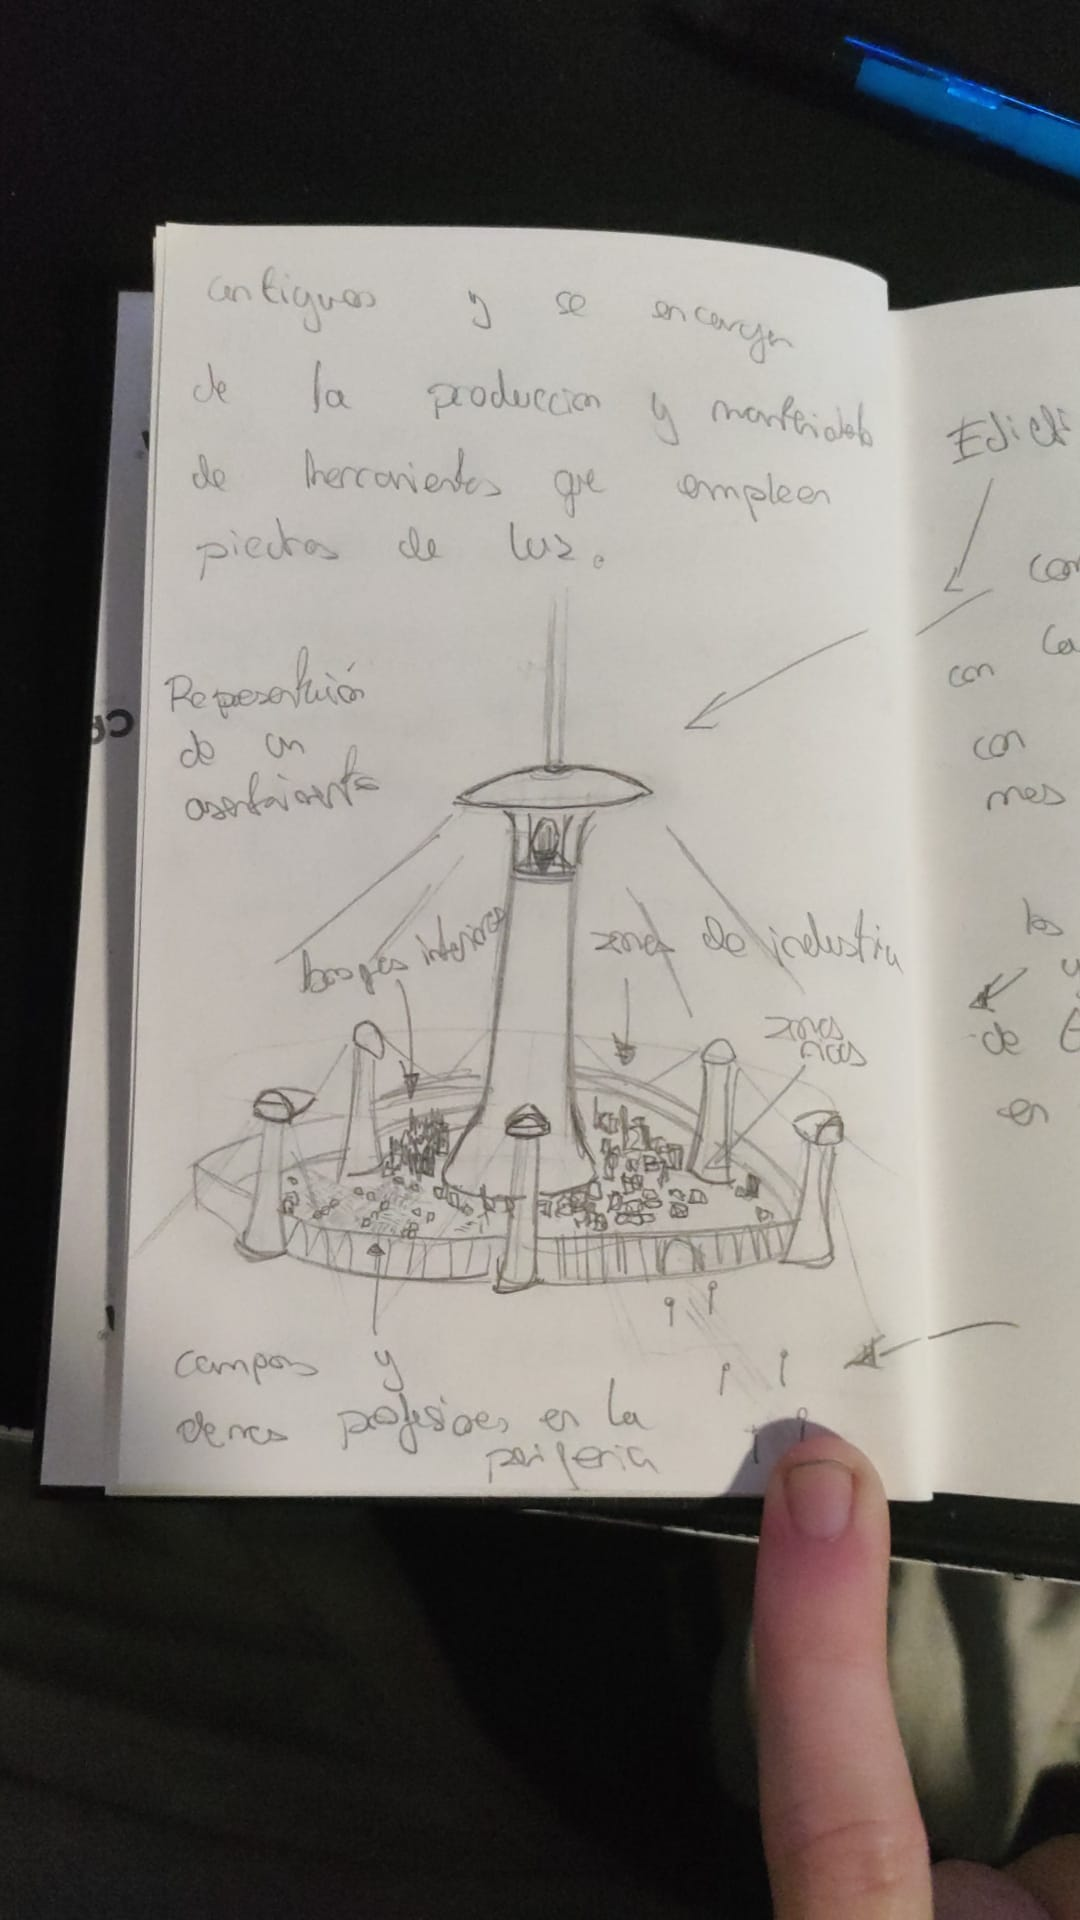 antiguos y se encargan
de la produccion y
de herramientas que empleen
piedras de luz.
Representación
de un
asentamiento
bosques interiores
zonas de industria
zonas
ricas
campos y
demas profesiones en la
periferia
con
con
mes
los
de
en